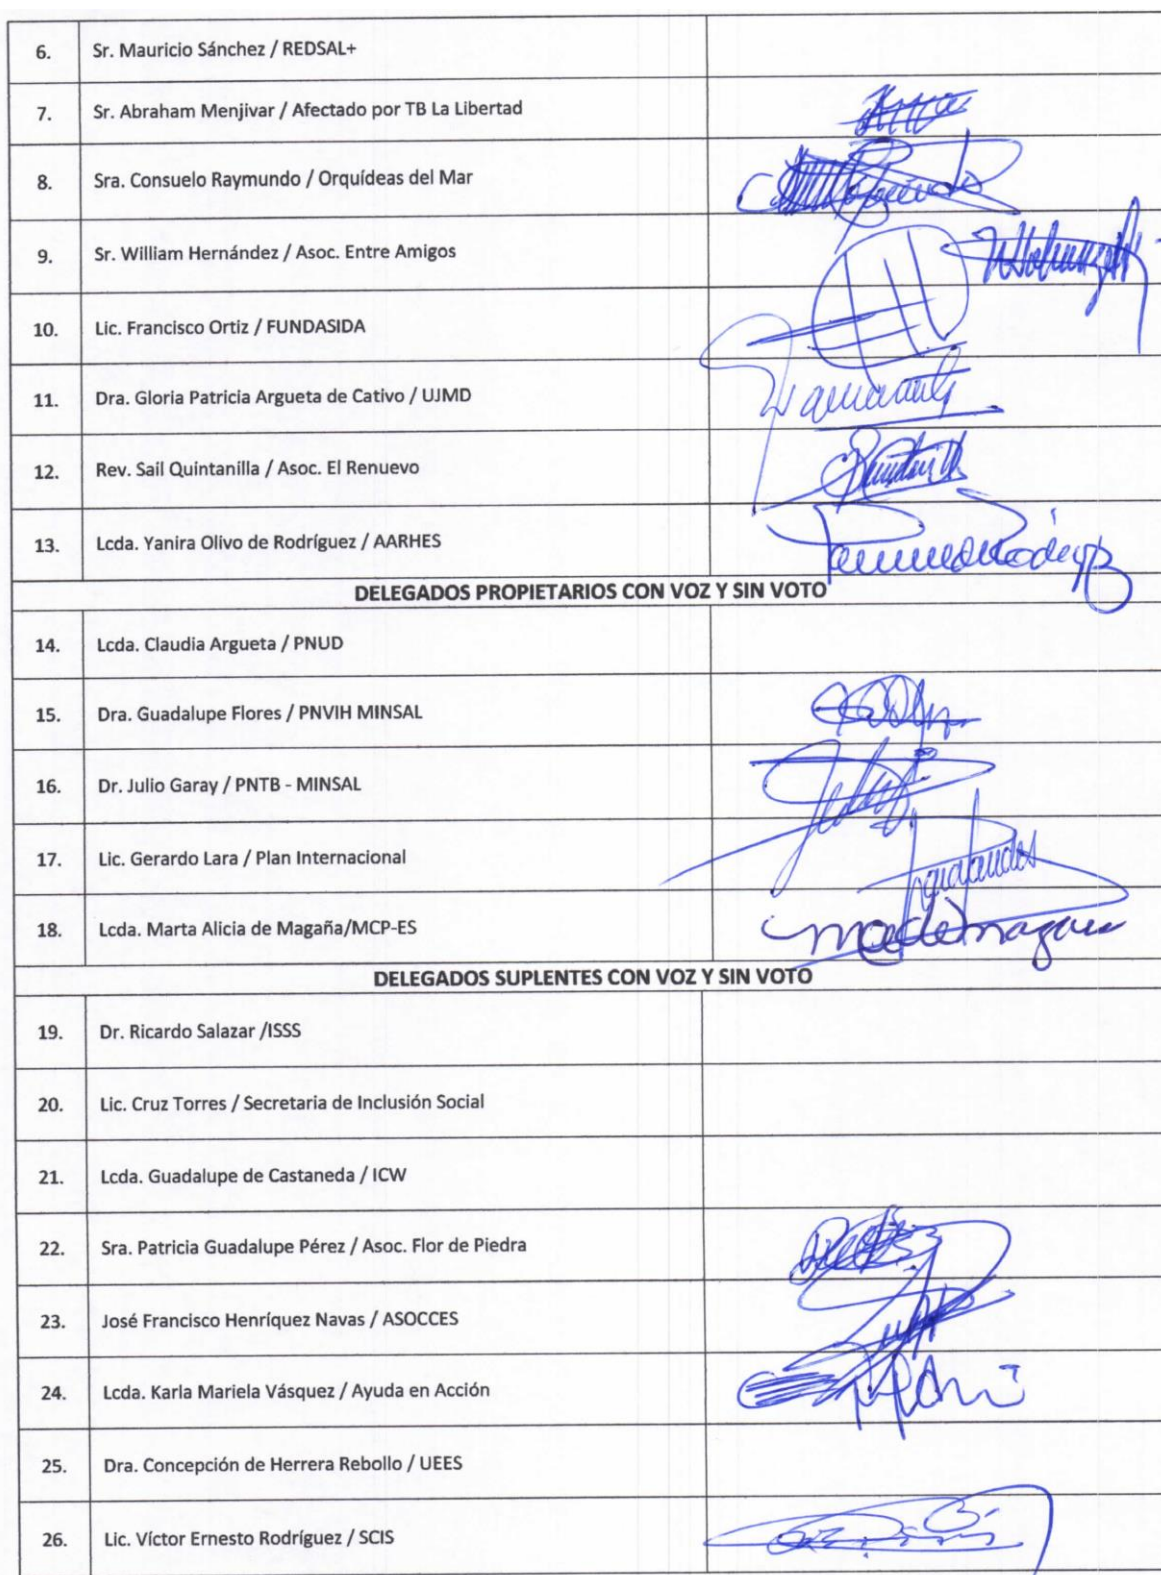 6. Sr. Mauricio Sánchez / REDSAL+
7. Sr. Abraham Menjivar / Afectado por TB La Libertad
8. Sra. Consuelo Raymundo / Orquídeas del Mar
9. Sr. William Hernández / Asoc. Entre Amigos
10. Lic. Francisco Ortiz / FUNDASIDA
11. Dra. Gloria Patricia Argueta de Cativo / UJMD
12. Rev. Sail Quintanilla / Asoc. El Renuevo
13. Lcda. Yanira Olivo de Rodríguez / AARHES
DELEGADOS PROPIETARIOS CON VOZ Y SIN VOTO
14. Lcda. Claudia Argueta / PNUD
15. Dra. Guadalupe Flores / PNVIH MINSAL
16. Dr. Julio Garay / PNTB - MINSAL
17. Lic. Gerardo Lara / Plan Internacional
18. Lcda. Marta Alicia de Magaña/MCP-ES
DELEGADOS SUPLENTES CON VOZ Y SIN VOTO
19. Dr. Ricardo Salazar /ISSS
20. Lic. Cruz Torres / Secretaria de Inclusión Social
21. Lcda. Guadalupe de Castaneda / ICW
22. Sra. Patricia Guadalupe Pérez / Asoc. Flor de Piedra
23. José Francisco Henríquez Navas / ASOCCES
24. Lcda. Karla Mariela Vásquez / Ayuda en Acción
25. Dra. Concepción de Herrera Rebollo / UEES
26. Lic. Víctor Ernesto Rodríguez / SCIS